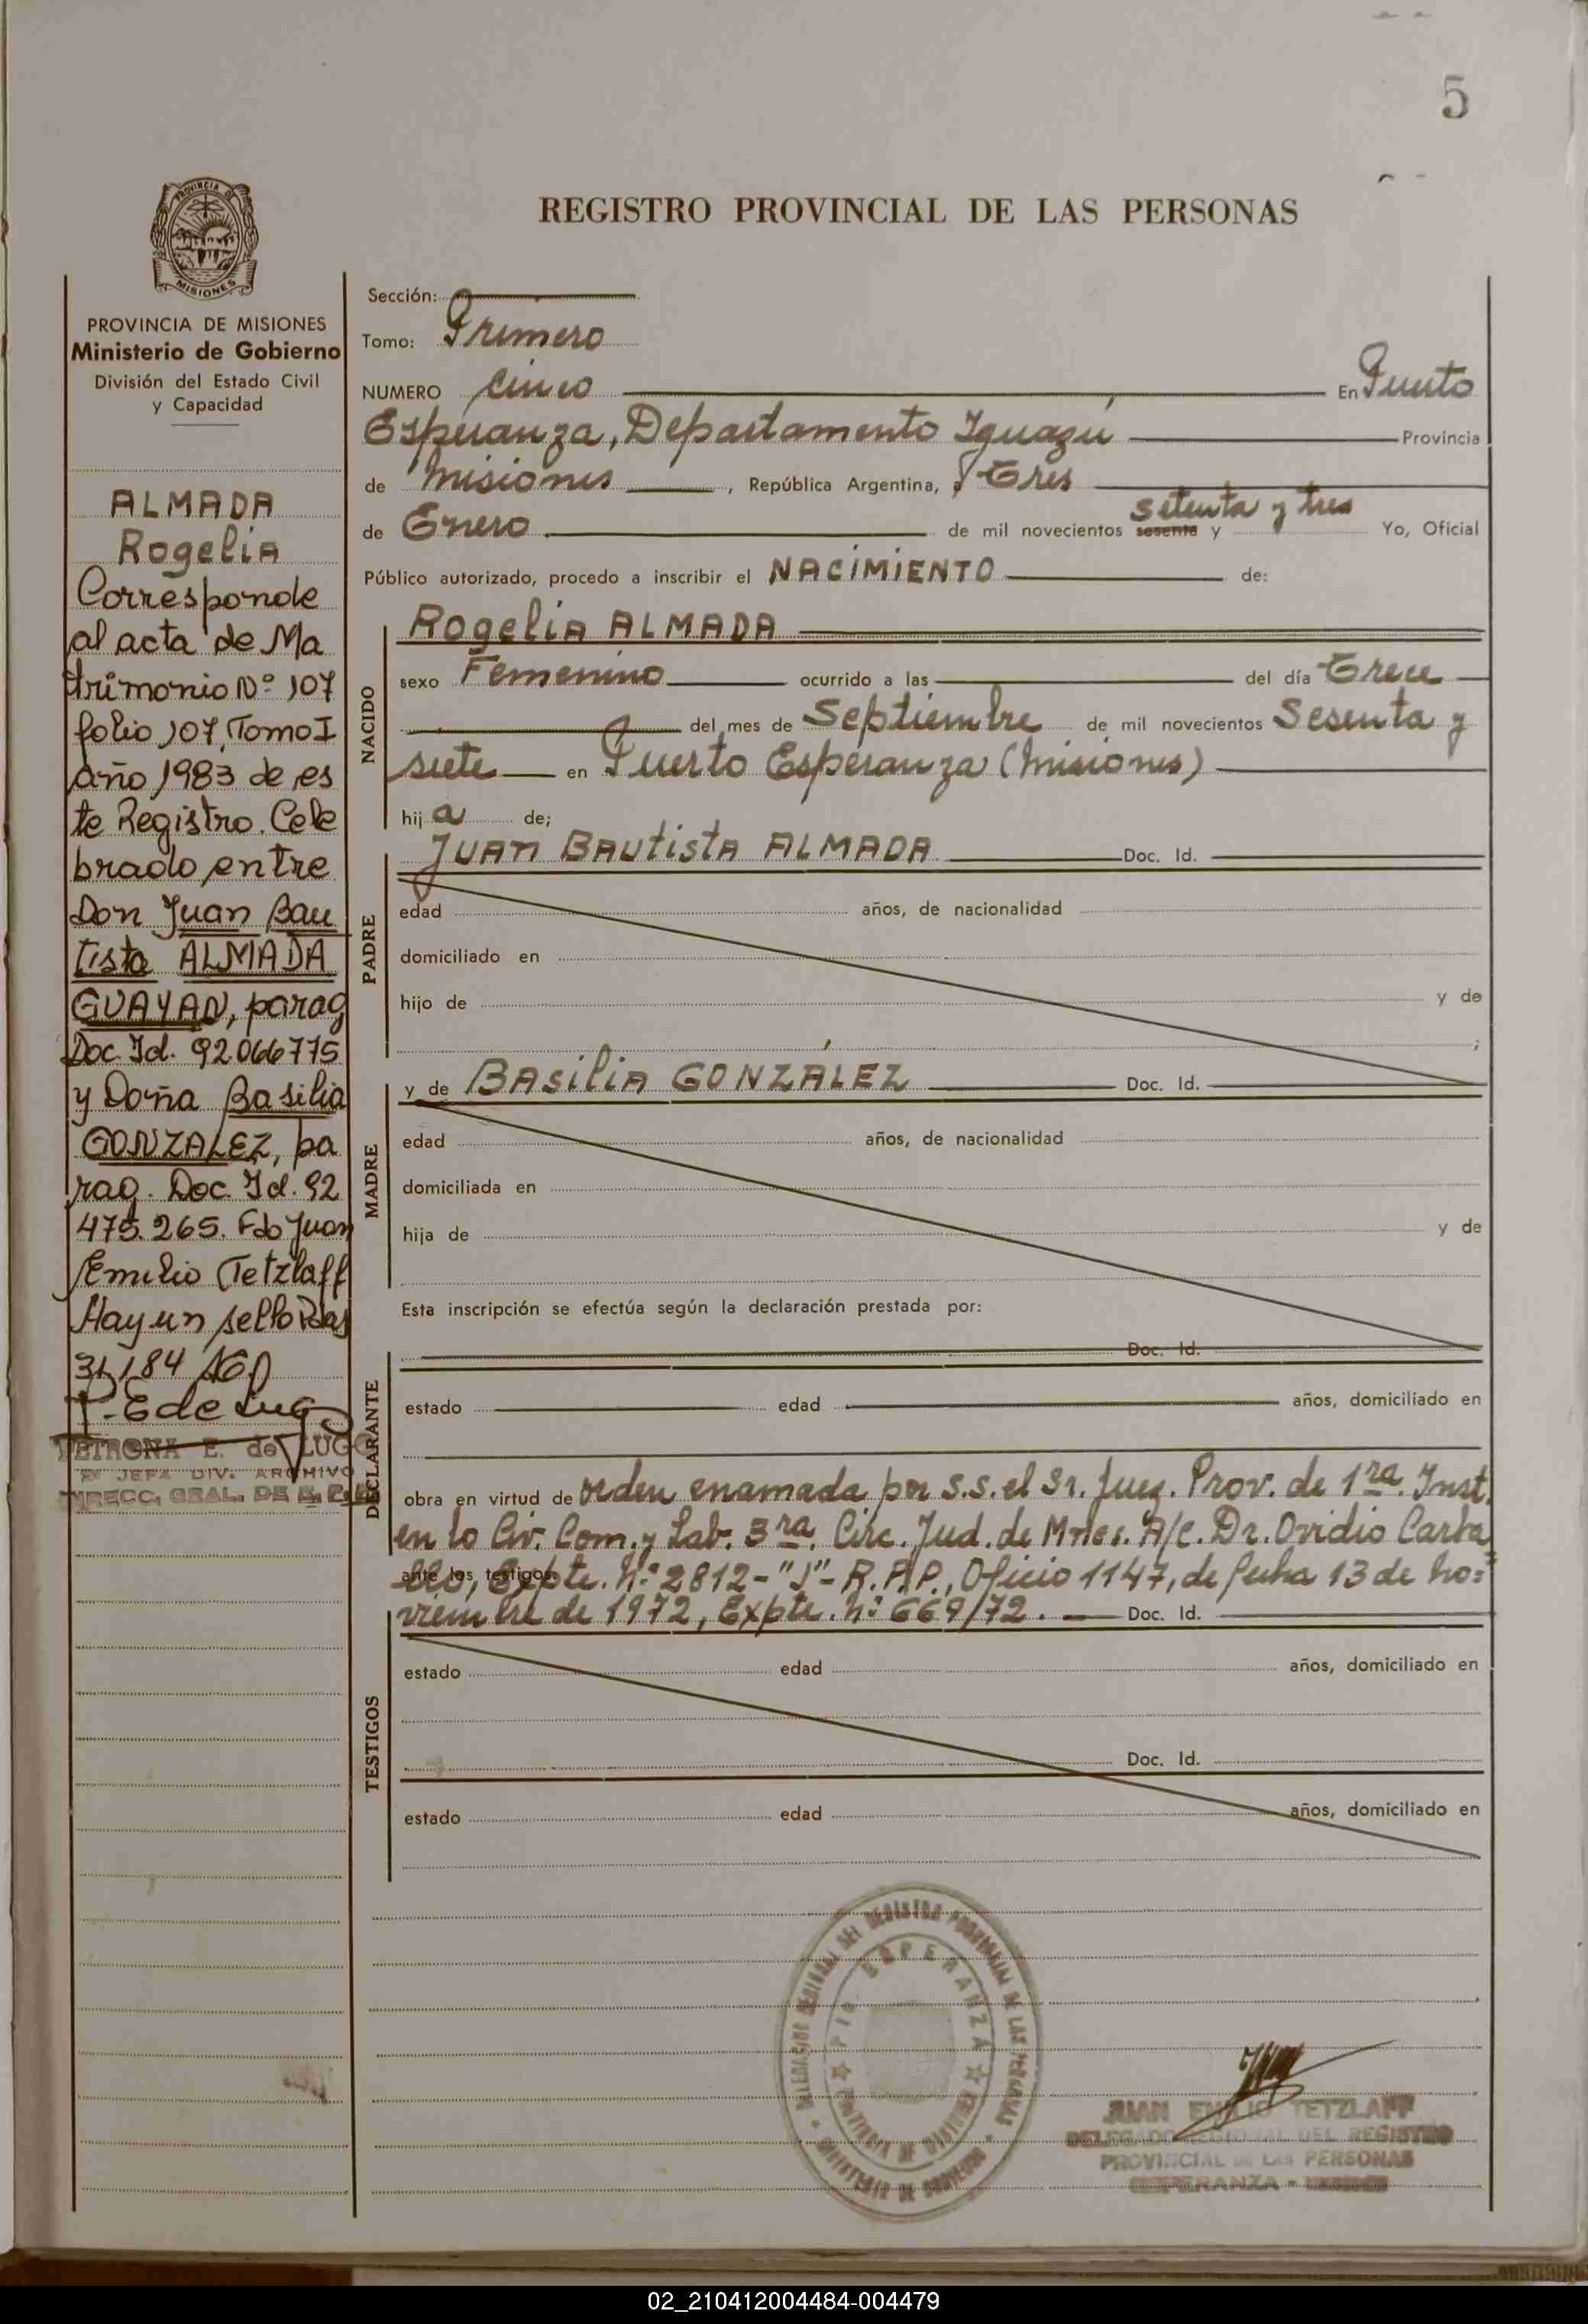 5
REGISTRO PROVINCIAL DE LAS PERSONAS
PROVINCIA DE
MISIONES
PROVINCIA DE MISIONES
Ministerio de Gobierno
División del Estado Civil
y Capacidad
ALMADA
Rogelia
Corresponde
al acta de Ma
trimonio Nº 107
folio 107, Tomo I
año 1983 de es
te Registro. Cele
brado entre
Don Juan Bau
tista ALMADA
GUAYAN, parag
Doc. Id. 92.066775
y Doña Basilia
GONZALEZ, pa
rag. Doc. Id. 92
475.265. Fdo Juan
Emilio Tetzlaff
Hay un sello Pdas
PETRONA E. de LUGO
JEFA DIV. ARCHIVO
DIRECC. GRAL. DE
Sección:
Tomo: Primero
NUMERO cinco En Puerto
Esperanza, Departamento Iguazú Provincia
de Misiones, República Argentina, a Tres
de Enero de mil novecientos sesenta y setenta y tres Yo, Oficial
Público autorizado, procedo a inscribir el NACIMIENTO de:
NACIDO
Rogelia ALMADA
sexo Femenino ocurrido a las del día Trece
del mes de Septiembre de mil novecientos Sesenta y
siete en Puerto Esperanza (Misiones)
hija de;
PADRE
Juan Bautista ALMADA Doc. Id.
edad años, de nacionalidad
domiciliado en
hijo de y de
;
MADRE
y de Basilia GONZÁLEZ Doc. Id.
edad años, de nacionalidad
domiciliada en
hija de y de
Esta inscripción se efectúa según la declaración prestada por:
DECLARANTE
Doc. Id.
estado edad años, domiciliado en
obra en virtud de orden enamada por S.S. el Sr. Juez. Prov. de 1ra. Inst.
en lo Civ. Com. y Lab. 3ra. Circ. Jud. de Mnes. A/C. Dr. Ovidio Carba
ante los testigos:
llo, Expte. Nº 2812-"J"- R.P.P., Oficio 1147, de fecha 13 de no=
viembre de 1972, Expte. Nº 669/72. Doc. Id.
TESTIGOS
estado edad años, domiciliado en
Doc. Id.
estado edad años, domiciliado en
DEL REGISTRO PROVINCIAL DE LAS PERSONAS
PTO ESPERANZA
PROVINCIA DE MISIONES
JUAN EMILIO TETZLAFF
DELEGADO REGIONAL DEL REGISTRO
PROVINCIAL DE LAS PERSONAS
ESPERANZA - MISIONES
02_210412004484-004479